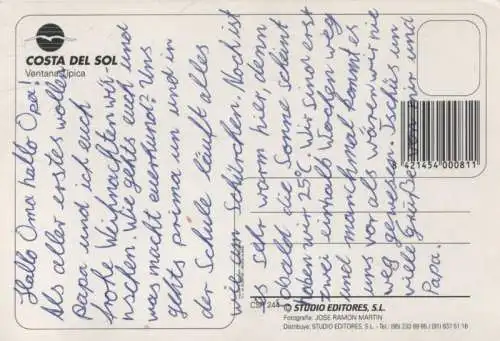 COSTA DEL SOL
Ventana típica
Hallo Oma hallo Opa!
Als aller erstes wollen
papa und ich euch
frohe Weihnachten wün-
schen. Wie gehts euch und
was macht eurhund? Uns
gehts prima un und in
der Schule läuft alles
wie am Schürchen. Noch ist
es sehr warm hier, denn
sobald die Sonne scheint
Haben wir 25°C. Wir sinn erst
zwei einhalb Wochen weg
und manchmal kommt es
uns vor als wären wir nie
weg gewesen. Tschüs, un
viele Grüße von mir und
Papa.
8 421454 000811
CSP 244
© STUDIO EDITORES, S.L.
Fotografía: JOSE RAMON MARTIN
Distribuye: STUDIO EDITORES, S.L. - Tel.: (95) 233 89 95 / (91) 637 51 16